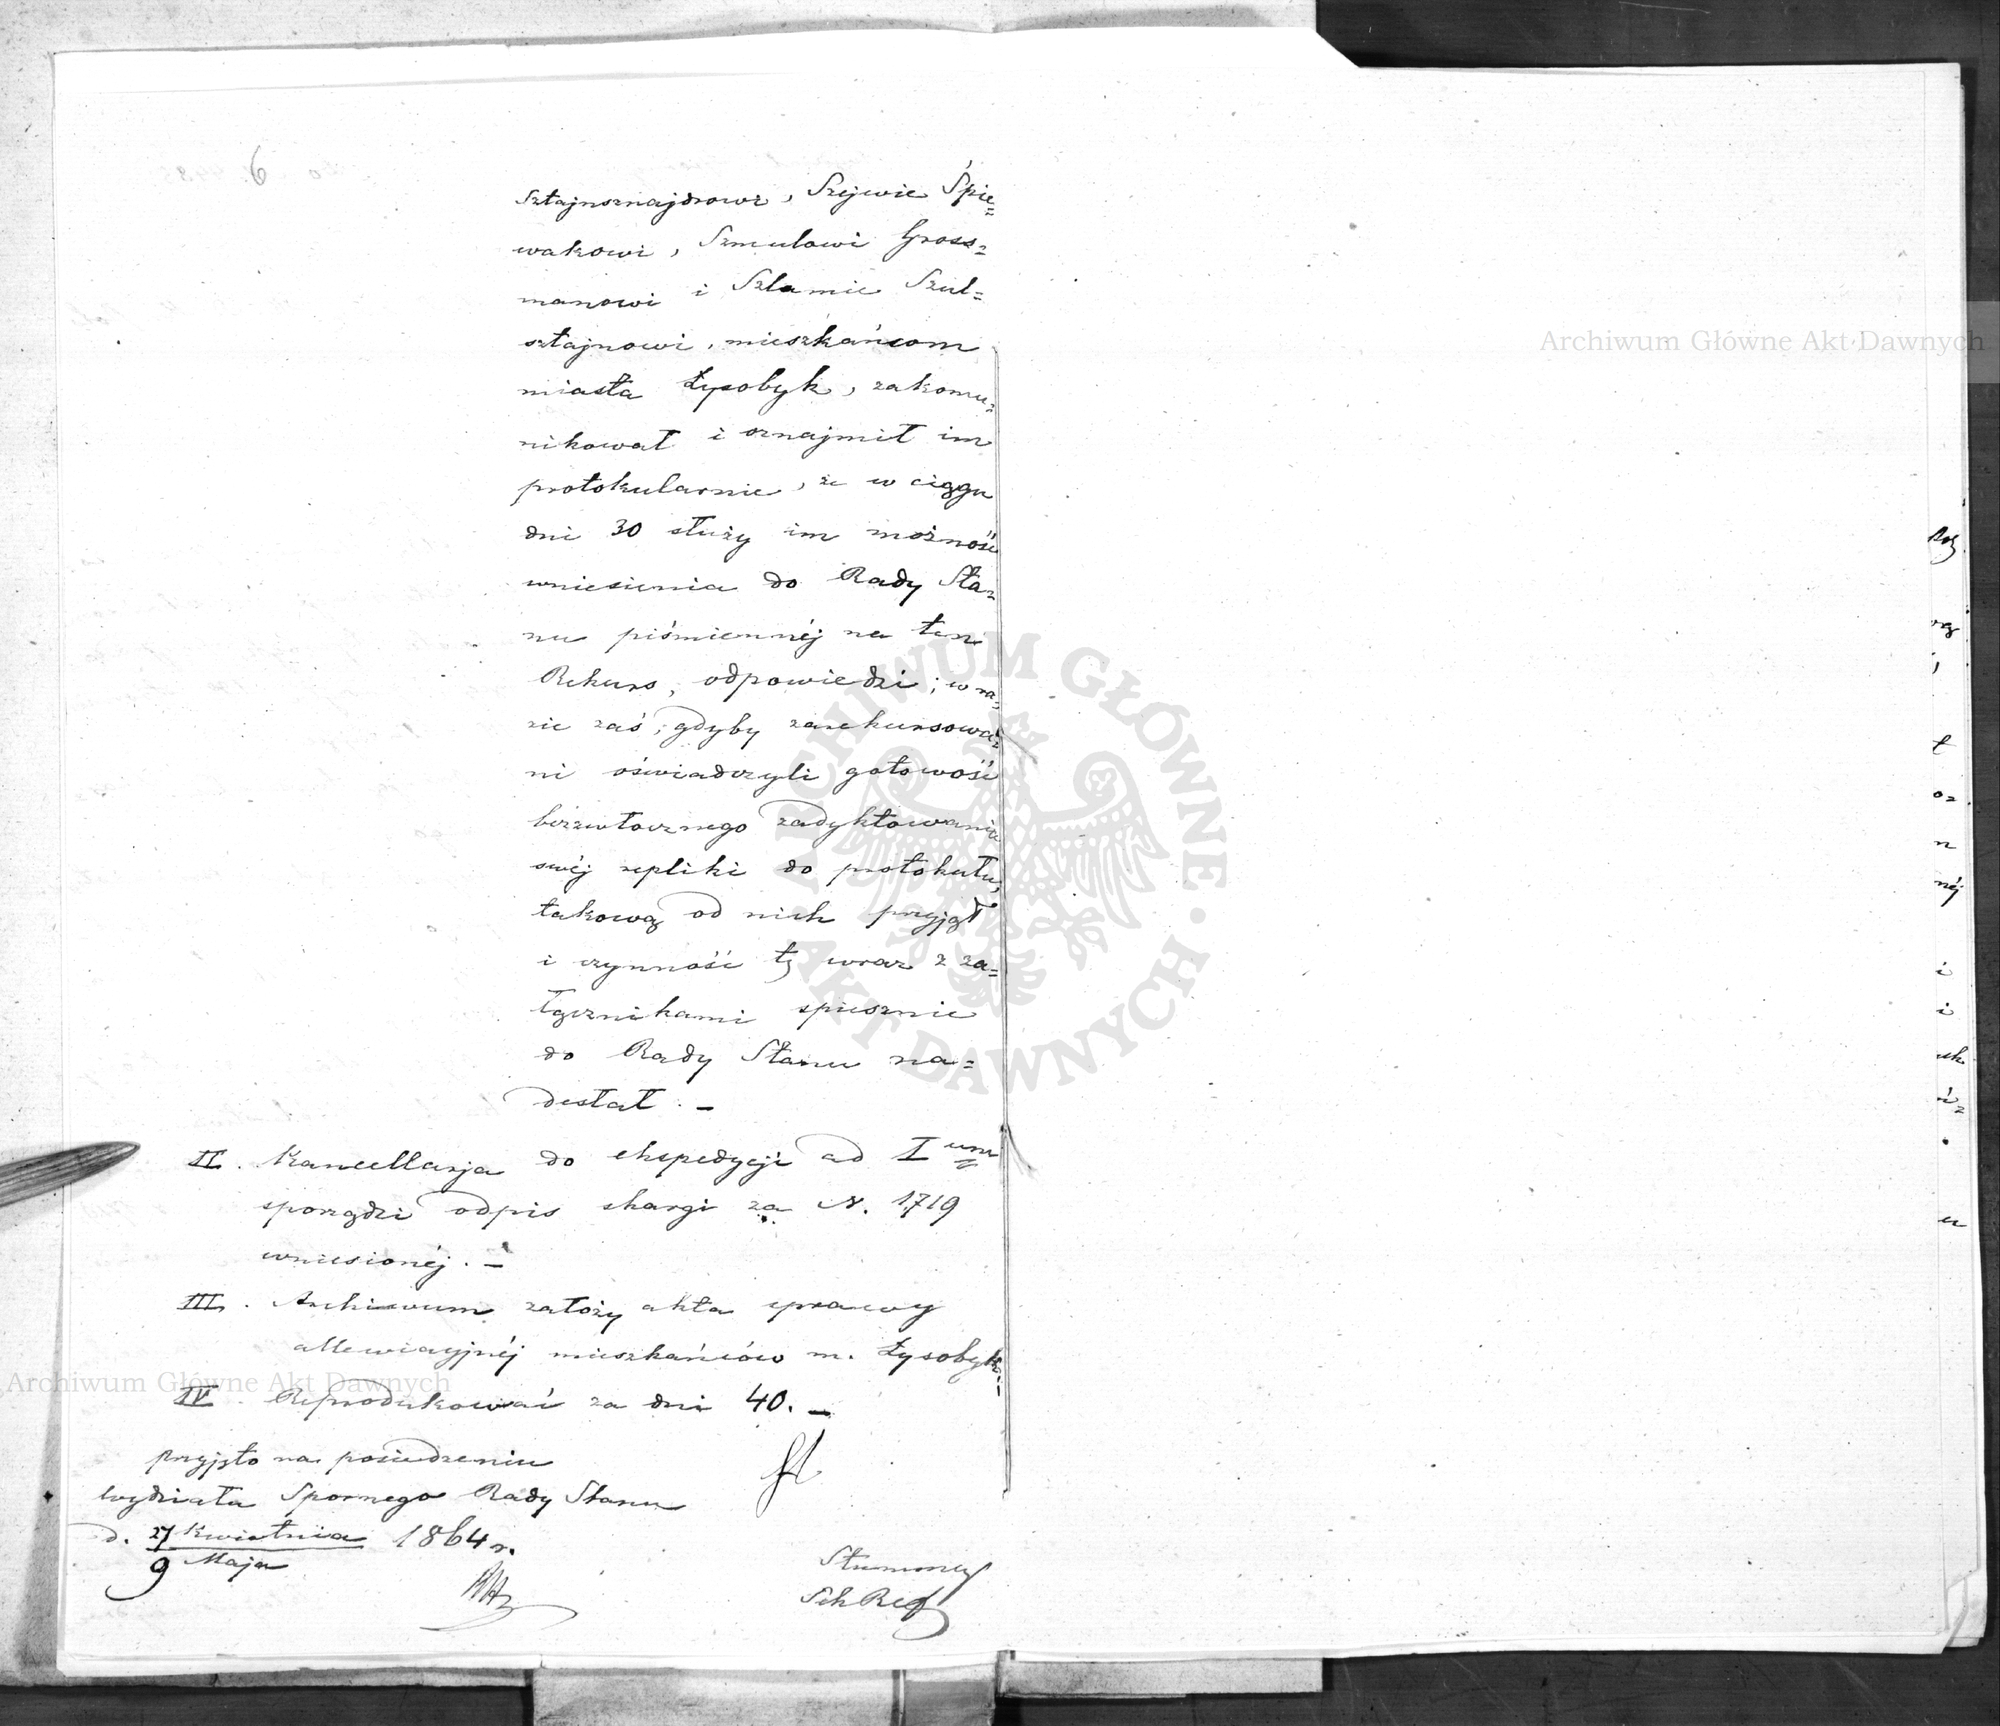 6
Sztajnsznajdrowi, Szejwie Śpie=
wakowi, Szmulowi Gross=
manowi i Szlamie Szul=
sztajnowi, mieszkańcom
miasta Łysobyk, zakomu=
nikował i oznajmił im
protokularnie, że w ciągu
dni 30 służy im możność
wniesienia do Rady Sta=
nu piśmiennéj na ten
Rekurs, odpowiedzi; w ra=
zie zaś, gdyby zarekursowa=
ni oświadczyli gotowość
bezzwłocznego zadyktowania
swéj repliki do protokułu,
takową od nich przyjął
i czynność tę wraz z za=
łącznikami spiesznie
do Rady Stanu na=
desłał. –
II. Kancellarja do ekspedycji ad I um
sporządzi odpis skargi za N. 1719
wniesionéj. –
III. Archiwum założy akta sprawy
allewiacyjnéj mieszkańców m. Łysobyk. –
IV. Reprodukować za dni 40. –
przyjęto na posiedzeniu
Wydziału Spornego Rady Stanu
d. 27 Kwietnia 1864 r.
9 Maja
Sek Ref
Archiwum Główne Akt Dawnych
Archiwum Główne Akt Dawnych
ARCHIWUM GŁÓWNE AKT DAWNYCH